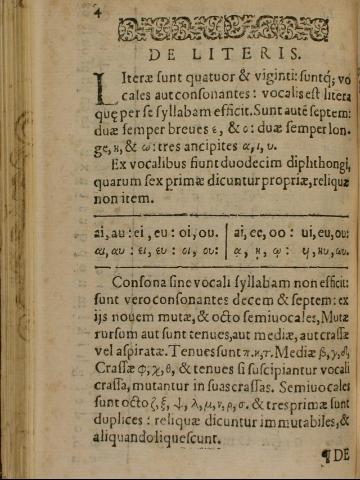 4
DE LITERIS.
LIteræ sunt quatuor & viginti: suntq́; vo
cales aut consonantes: vocalis est litera
quę per se syllabam efficit. Sunt autē septem:
duæ semper breues ε, & ο: duæ semper lon-
ge, η, & ω: tres ancipites α, ι, υ.
Ex vocalibus fiunt duodecim diphthongi,
quarum sex primæ dicuntur propriæ, reliquæ
non item.
ai, au: ei, eu: oi, ou. | ai, ee, oo: ui, eu, ou:
αι, αυ: ει, ευ: οι, ου: | ᾳ, ῃ, ῳ: υι, ηυ, ωυ.
Consona sine vocali syllabam non efficit:
sunt vero consonantes decem & septem: ex
ijs nouem mutæ, & octo semiuocales, Mutæ
rursum aut sunt tenues, aut mediæ, aut crassæ
vel aspiratæ. Tenues sunt π. κ, τ. Mediæ β, γ, δ,
Crassæ φ, χ, θ, & tenues si suscipiantur vocali
crassa, mutantur in suas crassas. Semiuocales
sunt octo ζ, ξ, ψ, λ, μ, ν, ρ, σ. & tres primæ sunt
duplices: reliquæ dicuntur immutabiles, &
aliquando liquescunt.
¶ DE